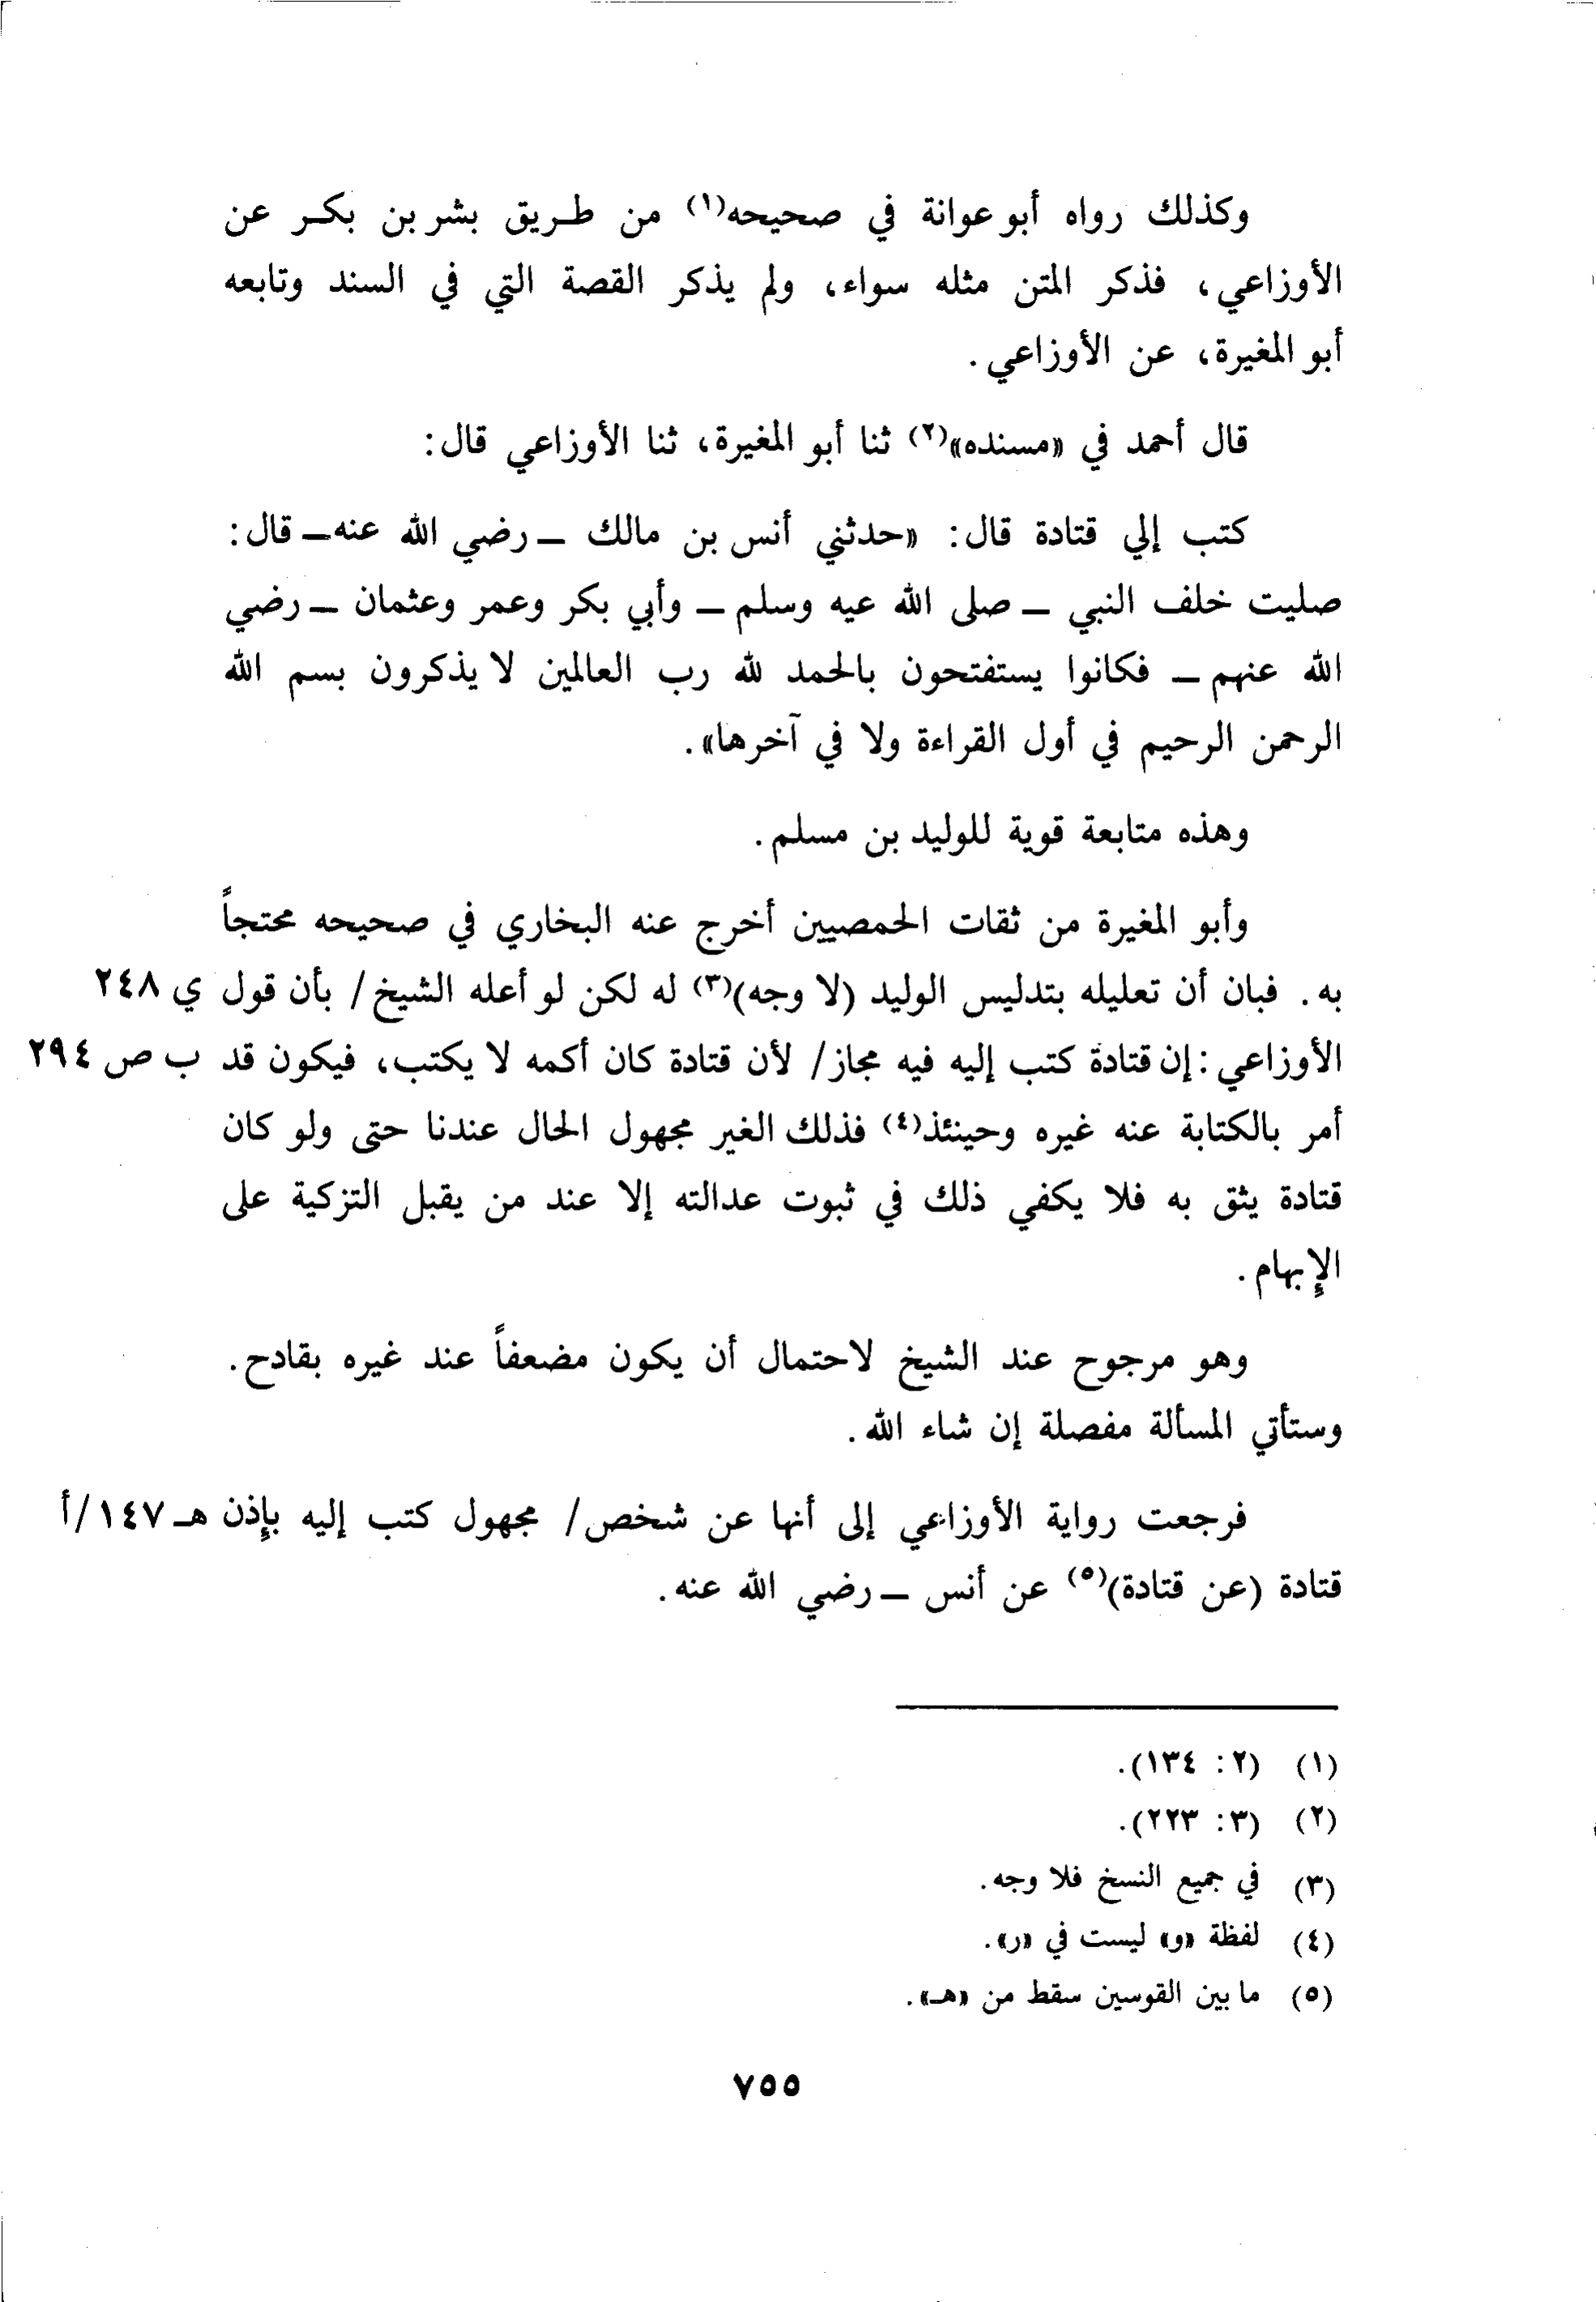 وكذلك رواه أبو عوانة في صحيحه(١) من طريق بشر بن بكر عن
الأوزاعي، فذكر المتن مثله سواء، ولم يذكر القصة التي في السند وتابعه
أبو المغيرة، عن الأوزاعي.
قال أحمد في «مسنده»(٢) ثنا أبو المغيرة، ثنا الأوزاعي قال:
كتب إلي قتادة قال: «حدثني أنس بن مالك – رضي الله عنه – قال:
صليت خلف النبي – صلى الله عيه وسلم – وأبي بكر وعمر وعثمان – رضي
الله عنهم – فكانوا يستفتحون بالحمد لله رب العالمين لا يذكرون بسم الله
الرحمن الرحيم في أول القراءة ولا في آخرها».
وهذه متابعة قوية للوليد بن مسلم.
وأبو المغيرة من ثقات الحمصيين أخرج عنه البخاري في صحيحه محتجاً
به. فبان أن تعليله بتدليس الوليد (لا وجه)(٣) له لكن لو أعله الشيخ / بأن قول ي ٢٤٨
الأوزاعي: إن قتادة كتب إليه فيه مجاز/ لأن قتادة كان أكمه لا يكتب، فيكون قد ب ص ٢٩٤
أمر بالكتابة عنه غيره وحينئذ(٤) فذلك الغير مجهول الحال عندنا حتى ولو كان
قتادة يثق به فلا يكفي ذلك في ثبوت عدالته إلا عند من يقبل التزكية على
الإبهام.
وهو مرجوح عند الشيخ لاحتمال أن يكون مضعفاً عند غيره بقادح.
وستأتي المسألة مفصلة إن شاء الله.
فرجعت رواية الأوزاعي إلى أنها عن شخص/ مجهول كتب إليه بإذن هـ ١٤٧/أ
قتادة (عن قتادة)(٥) عن أنس – رضي الله عنه.
(١) (٢: ١٣٤).
(٢) (٣: ٢٢٣).
(٣) في جميع النسخ فلا وجه.
(٤) لفظة «و» ليست في «ر».
(٥) ما بين القوسين سقط من «هـ».
٧٥٥